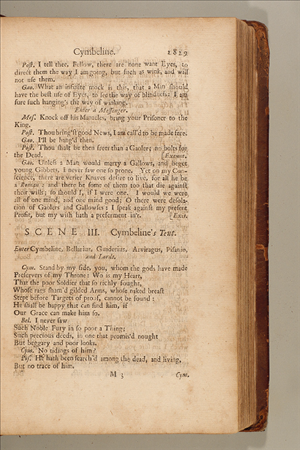 Cymbeline. 1829
Post. I tell thee, Fellow, there are none want Eyes, to
direct them the way I am going, but such as wink, and will
not use them.
Gao. What an infinite mock is this, that a Man should
have the best use of Eyes, to see the way of blindness! I am
sure such hanging's the way of winking.
Enter a Messenger.
Mes. Knock off his Manacles, bring your Prisoner to the
King.
Post. Thou bring'st good News, I am call'd to be made free.
Gao. I'll be hang'd then.
Post. Thou shalt be then freer than a Gaoler; no bolts for
the Dead. [Exeunt.
Gao. Unless a Man would marry a Gallows, and beget
young Gibbets, I never saw one so prone. Yet on my Con-
science, there are verier Knaves desire to live, for all he be
a Roman; and there be some of them too that die against
their wills; so should I, if I were one. I would we were
all of one mind, and one mind good; O there were desola-
tion of Gaolers and Gallowses: I speak against my present
Profit, but my wish hath a preferment in't. [Exit.
SCENE III. Cymbeline's Tent.
Enter Cymbeline, Bellarius, Guiderius, Arviragus, Pisanio,
and Lords.
Cym. Stand by my side, you, whom the gods have made
Preservers of my Throne: Wo is my Heart,
That the poor Soldier that so richly fought,
Whose rags sham'd gilded Arms, whose naked breast
Stept before Targets of proof, cannot be found:
He shall be happy that can find him, if
Our Grace can make him so.
Bel. I never saw
Such Noble Fury in so poor a Thing;
Such precious deeds, in one that promis'd nought
But beggary and poor looks.
Cym. No tidings of him?
Pis. He hath been search'd among the dead, and living,
But no trace of him.
M 3 Cym.